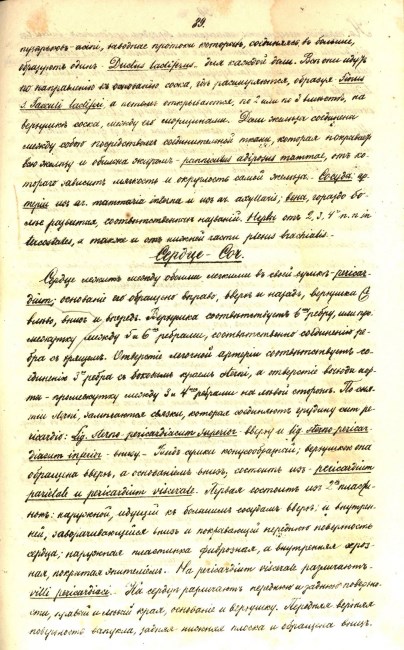 89.
пузырьков-acini, выводные протоки которыхъ, соединяясь въ большіе,
образуютъ одинъ- Ductus lactiferus- для каждой доли. Всѣ они идутъ
по направленію къ основанію соска, гдѣ расширяются, образуя Sinus
s. Sacculi lactiferi, а потомъ открываются, по 2 или по 3 вмѣстѣ, на
верхушкѣ соска, между его морщинами. Доли железы соединены
между собою посредствомъ соединительной ткани, которая покрываетъ
всю железу и обильна жиромъ- panniculus adiposus mammae, отъ ко-
тораго зависитъ мягкость и округлость самой железы. Сосуды: ар-
теріи изъ ar. mammaria interna и изъ ar. axyllaris; вены, гораздо бо-
лѣе развитыя, соотвѣтственныхъ названій. Нервы отъ 2, 3, 4го n. n. in-
tercostales, а также и отъ нижней части plexus brachialis.
Сердце- Cor.
Сердце лежитъ между обоими легкими въ своей сумкѣ- pericar-
dium; основаніе его обращено вправо, вверхъ и назадъ, верхушка
влѣво, внизъ и впередъ. Верхушка соотвѣтствуетъ 6му ребру, или про-
межутку между 5 и 6мъ ребрами, соотвѣтственно соединенію ре-
бра съ хрящемъ. Отверстіе легочной артеріи соотвѣтствуетъ со-
единенію 3го ребра съ боковымъ краемъ sterni, а отверстіе
промежутку между 3 и 4мъ ребрами на лѣвой сторонѣ. По
sterni, замѣчаются связки, которыя соединяютъ грудину съ peri-
cardio: Lig. sterno-pericardiacum superior- вверху и Lig. sterno pericar-
diacum inferior- внизу.- Видъ сумки конусообразный; верхушкою она
обращена вверхъ, а основаніемъ внизъ, состоитъ изъ- pericardium
parietale и pericardium viscerale. Первая состоитъ изъ 2хъ пласти-
нокъ: наружной, идущей къ большимъ сосудамъ вверхъ; и внутрен-
ней, заворачивающейся внизъ и покрывающей переднюю поверхность
сердца; наружная пластинка фиброзная, а внутренняя сероз-
ная, покрытая эпителіемъ. На pericardium viscerale различаютъ-
villi pericardiaci.- На сердцѣ различаютъ переднюю и заднюю поверхно-
сти, правый и лѣвый края, основаніе и верхушку. Передняя верхняя
поверхность выпукла, задняя нижняя плоска и обращена внизъ.